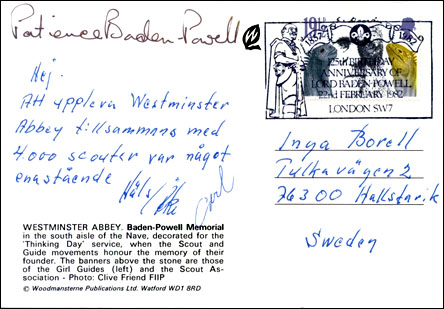 Patience Baden-Powell
Hej.
Att uppleva Westminster
Abbey tillsammans med
4.000 scouter var något
enastående
Häls/Åke
WESTMINSTER ABBEY. Baden-Powell Memorial
in the south aisle of the Nave, decorated for the
'Thinking Day' service, when the Scout and
Guide movements honour the memory of their
founder. The banners above the stone are those
of the Girl Guides (left) and the Scout As-
sociation - Photo: Clive Friend FIIP
© Woodmansterne Publications Ltd. Watford WD1 8RD
1857
1982
125th BIRTHDAY
ANNIVERSARY OF
LORD BADEN-POWELL
22nd FEBRUARY 1982
LONDON SW7
Inga Borell
Tulkavägen 2
76300 Hallstavik
Sweden